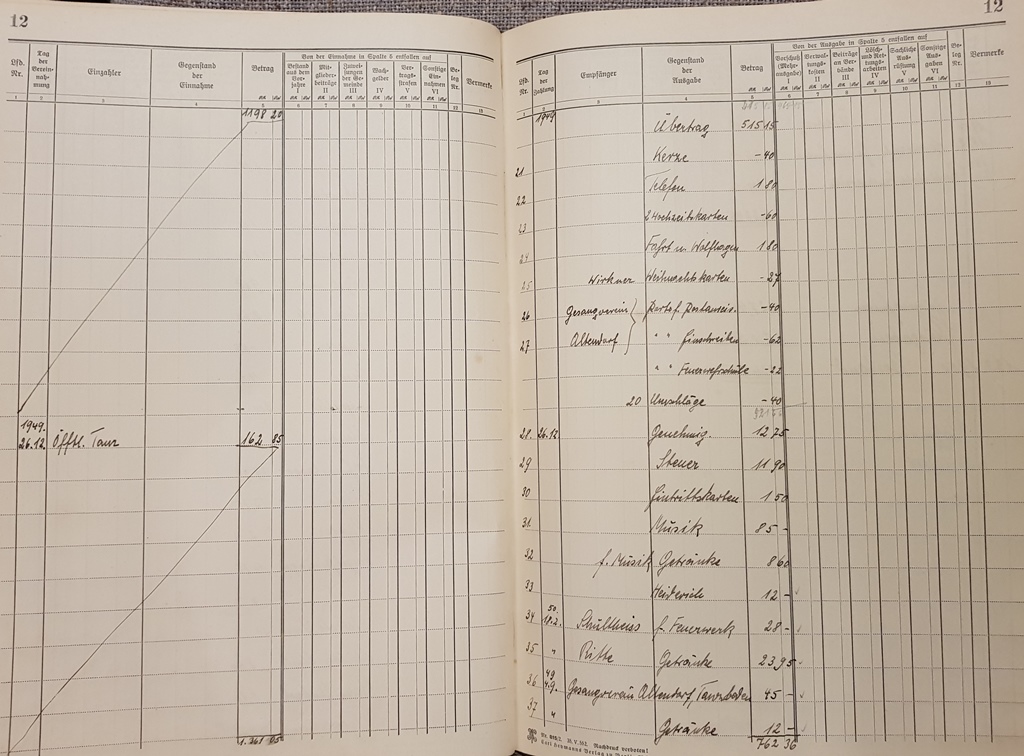 12
12
Von der Einnahme in Spalte 5 entfallen auf
Lfd. Nr.
Tag der Vereinnahmung
Einzahler
Gegenstand der Einnahme
Betrag
Bestand aus dem Vorjahre I
Mitgliederbeiträge II
Zuweisungen der Gemeinde III
Wachgelder IV
Vertragsstrafen V
Sonstige Einnahmen VI
Beleg Nr.
Vermerke
1198 20
1949.
26.12. Öfftl. Tanz 162 85
1.361 05
Von der Ausgabe in Spalte 5 entfallen auf
Lfd. Nr.
Tag der Zahlung
Empfänger
Gegenstand der Ausgabe
Betrag
Vorschuß (Mehrausgabe) I
Verwaltungskosten II
Beiträge an Verbände III
Lösch- und Rettungsarbeiten IV
Sächliche Ausrüstung V
Sonstige Ausgaben VI
Beleg Nr.
Vermerke
1949 Übertrag 515 15
21 Kerze -40
22 Telefon 1 80
23 2 Hochzeitskarten -60
24 Fahrt n. Wolfhagen 1 80
25 Wirkner Weihnachtskarten -27
26 Gesangverein Porto f. Postanweis. -40
27 Altendorf " " Einschreiben -62
" " Feuerwehrschule -22
20 Umschläge -40
28. 26.12. Genehmig. 12 75
29 Steuer 11 90
30 Eintrittskarten 1 50
31. Musik 85 -
32 f. Musik Getränke 8 60
33 Heiderich 12 -
34 50. 18.2. Schultheiss f. Feuerwerk 28 -
35 " Ritte Getränke 23 95
36 49 4.9. Gesangverein Altendorf, Tanzboden 45 -
37 " Getränke 12 -
762 36
Nachdruck verboten!
Carl Heymanns Verlag